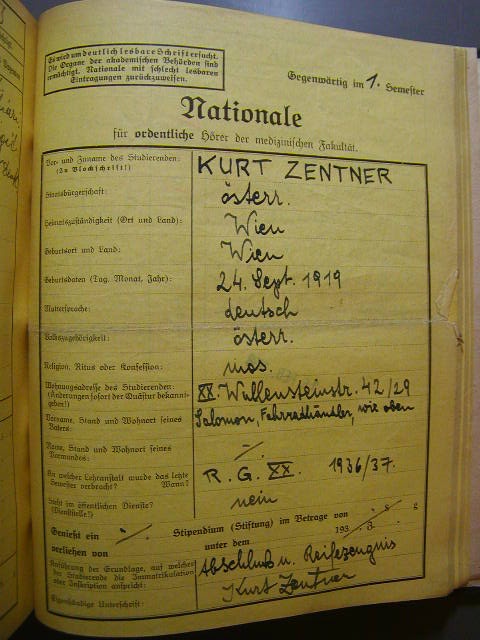 Es wird um deutlich lesbare Schrift ersucht.
Die Organe der akademischen Behörden sind
ermächtigt, Nationale mit schlecht lesbaren
Eintragungen zurückzuweisen.
Gegenwärtig im 1. Semester
Nationale
für ordentliche Hörer der medizinischen Fakultät.
Vor- und Zuname des Studierenden: KURT ZENTNER
(In Blockschrift!)
Staatsbürgerschaft: österr.
Heimatszuständigkeit (Ort und Land): Wien
Geburtsort und Land: Wien
Geburtsdaten (Tag, Monat, Jahr): 24. Sept. 1919
Muttersprache: deutsch
Volkszugehörigkeit: österr.
Religion, Ritus oder Konfession: mos.
Wohnungsadresse des Studierenden: XX. Wallensteinstr. 42/29
(Änderungen sofort der Quästur bekannt-
geben!)
Vorname, Stand und Wohnort seines Salomon, Fahrradhändler, wie oben
Vaters:
Name, Stand und Wohnort seines
Vormundes: -/.
An welcher Lehranstalt wurde das letzte R. G. XX. 1936/37.
Semester verbracht? Wann?
Steht im öffentlichen Dienste? nein
(Dienststelle?)
Genießt ein -/. Stipendium (Stiftung) im Betrage von S g
verliehen von unter dem 193
Anführung der Grundlage, auf welcher Abschluß u. Reifezeugnis
der Studierende die Immatrikulation
oder Inskription anspricht:
Eigenhändige Unterschrift: Kurt Zentner